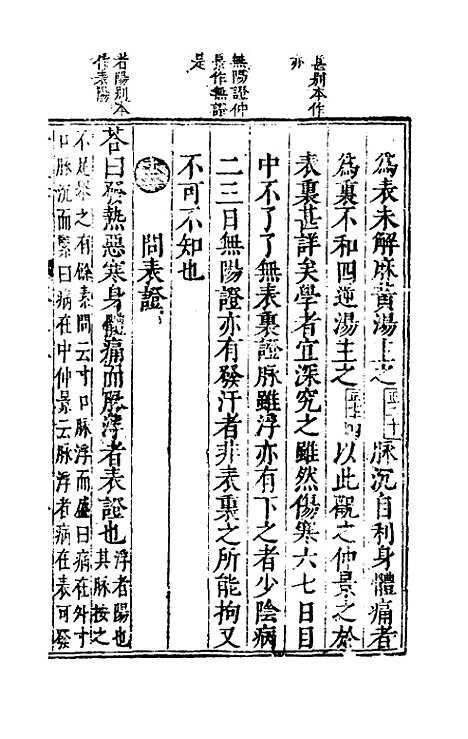 長別本作
亦
無陽證仲
景作無證
是
若陽別本
作表陽
爲表未解麻黃湯主之正二十脉沉自利身體痛者
爲裏不和四逆湯主之正七四以此觀之仲景之於
表裏甚詳矣學者宜深究之雖然傷寒六七日目
中不了了無表裏證脉雖浮亦有下之者少陰病
二三日無陽證亦有發汗者非表裏之所能拘又
不可不知也
問表證
荅曰發熱惡寒身體痛而脉浮者表證也浮者陽也其脉按之
不足舉之有餘素問云寸口脉浮而盛曰病在外寸
口脉沉而緊曰病在中仲景云脉浮者病在表可發